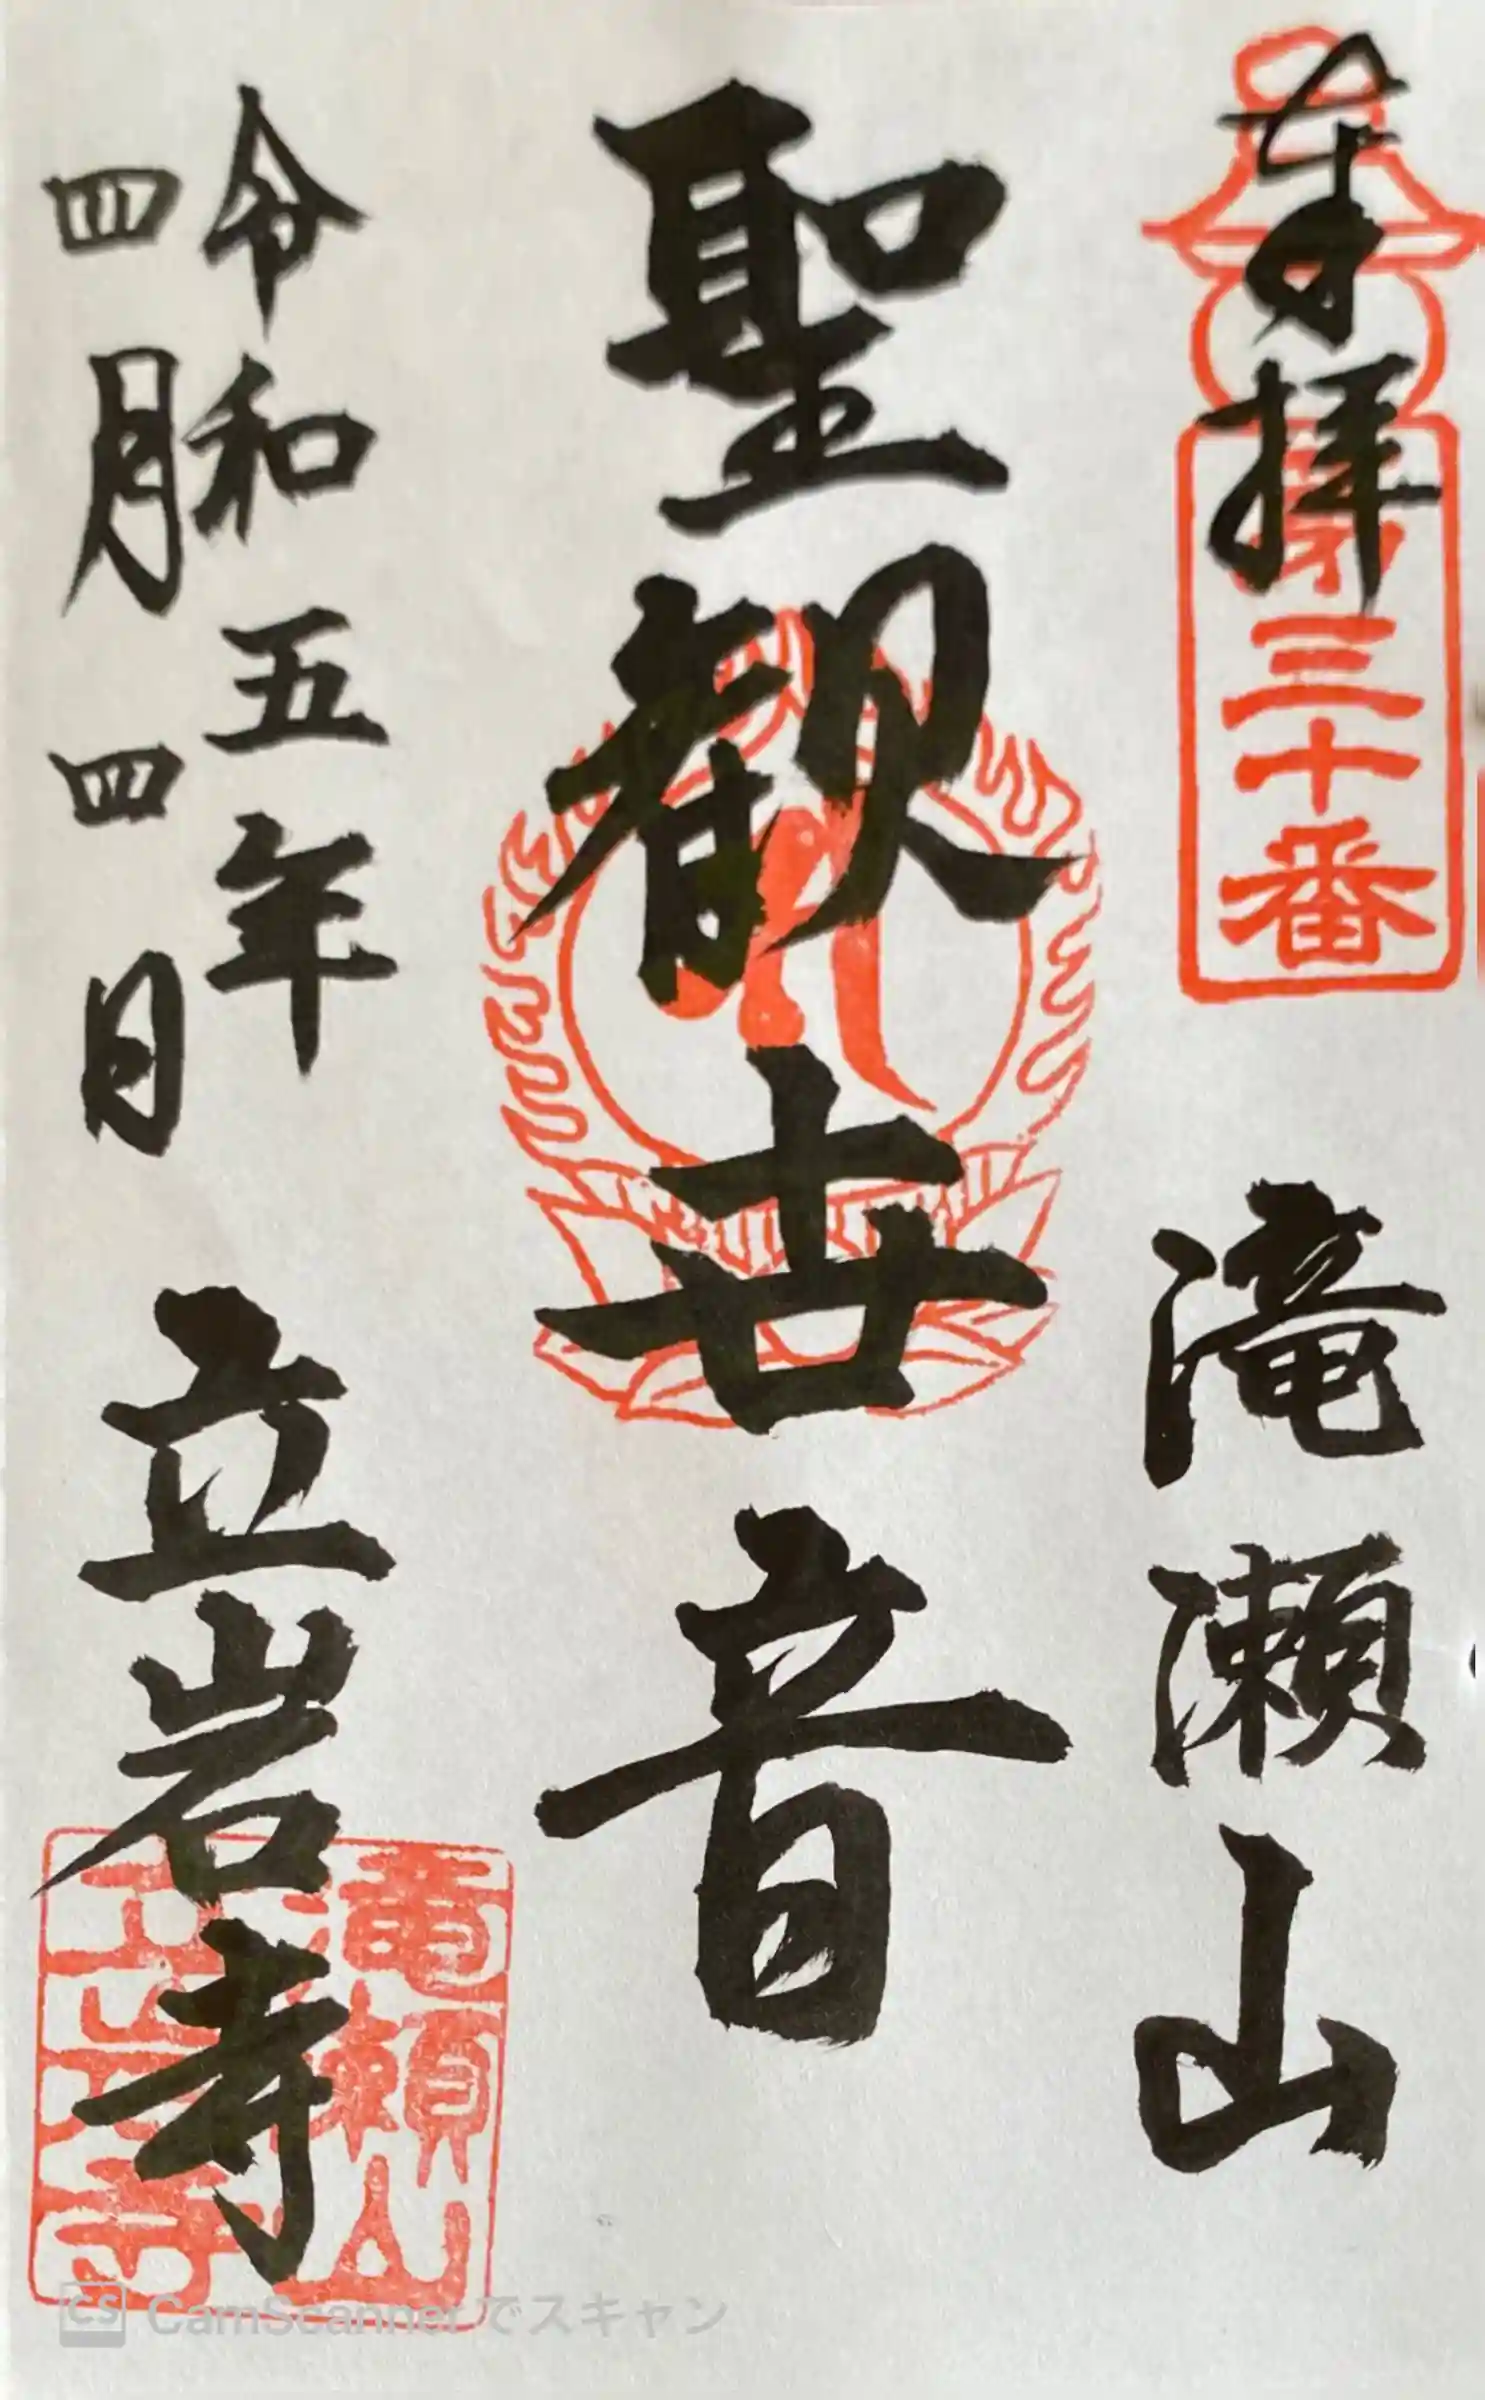 奉拝
第三十番
滝瀬山
聖観世音
令和五年
四月四日
立岩寺
滝瀬山
立岩寺
CS CamScannerでスキャン